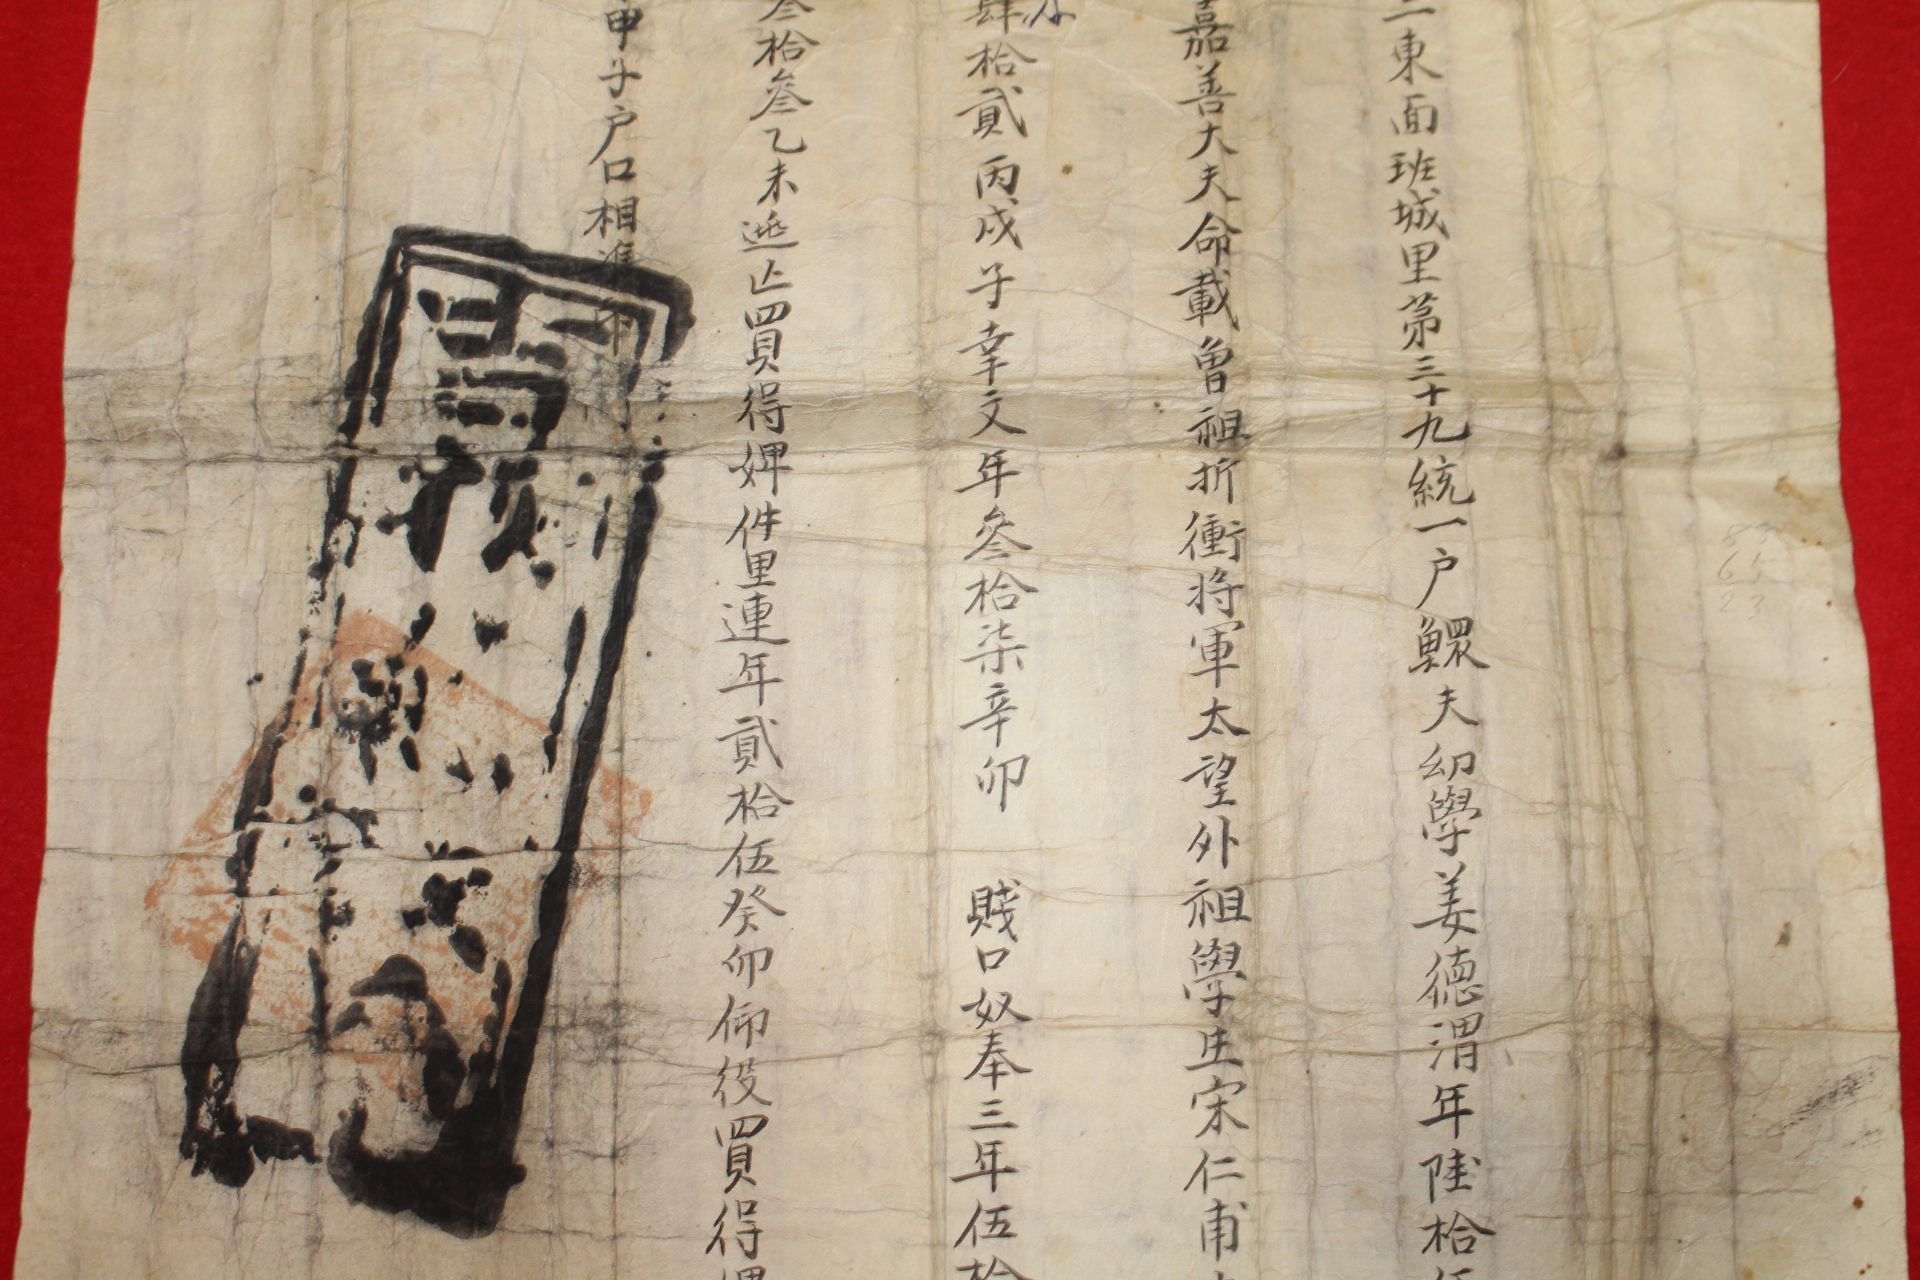 二東面班城里第三十九統一户鰥夫幼學姜德渭年陸拾
嘉善大夫命載曾祖折衝將軍太望外祖學生宋仁甫
肆拾貳丙戌子幸文年叄拾柒辛卯 賤口奴奉三年伍拾
叄拾叄乙未逃亡四買得婢件里連年貳拾伍癸卯仰役四買得婢
甲子户口相準